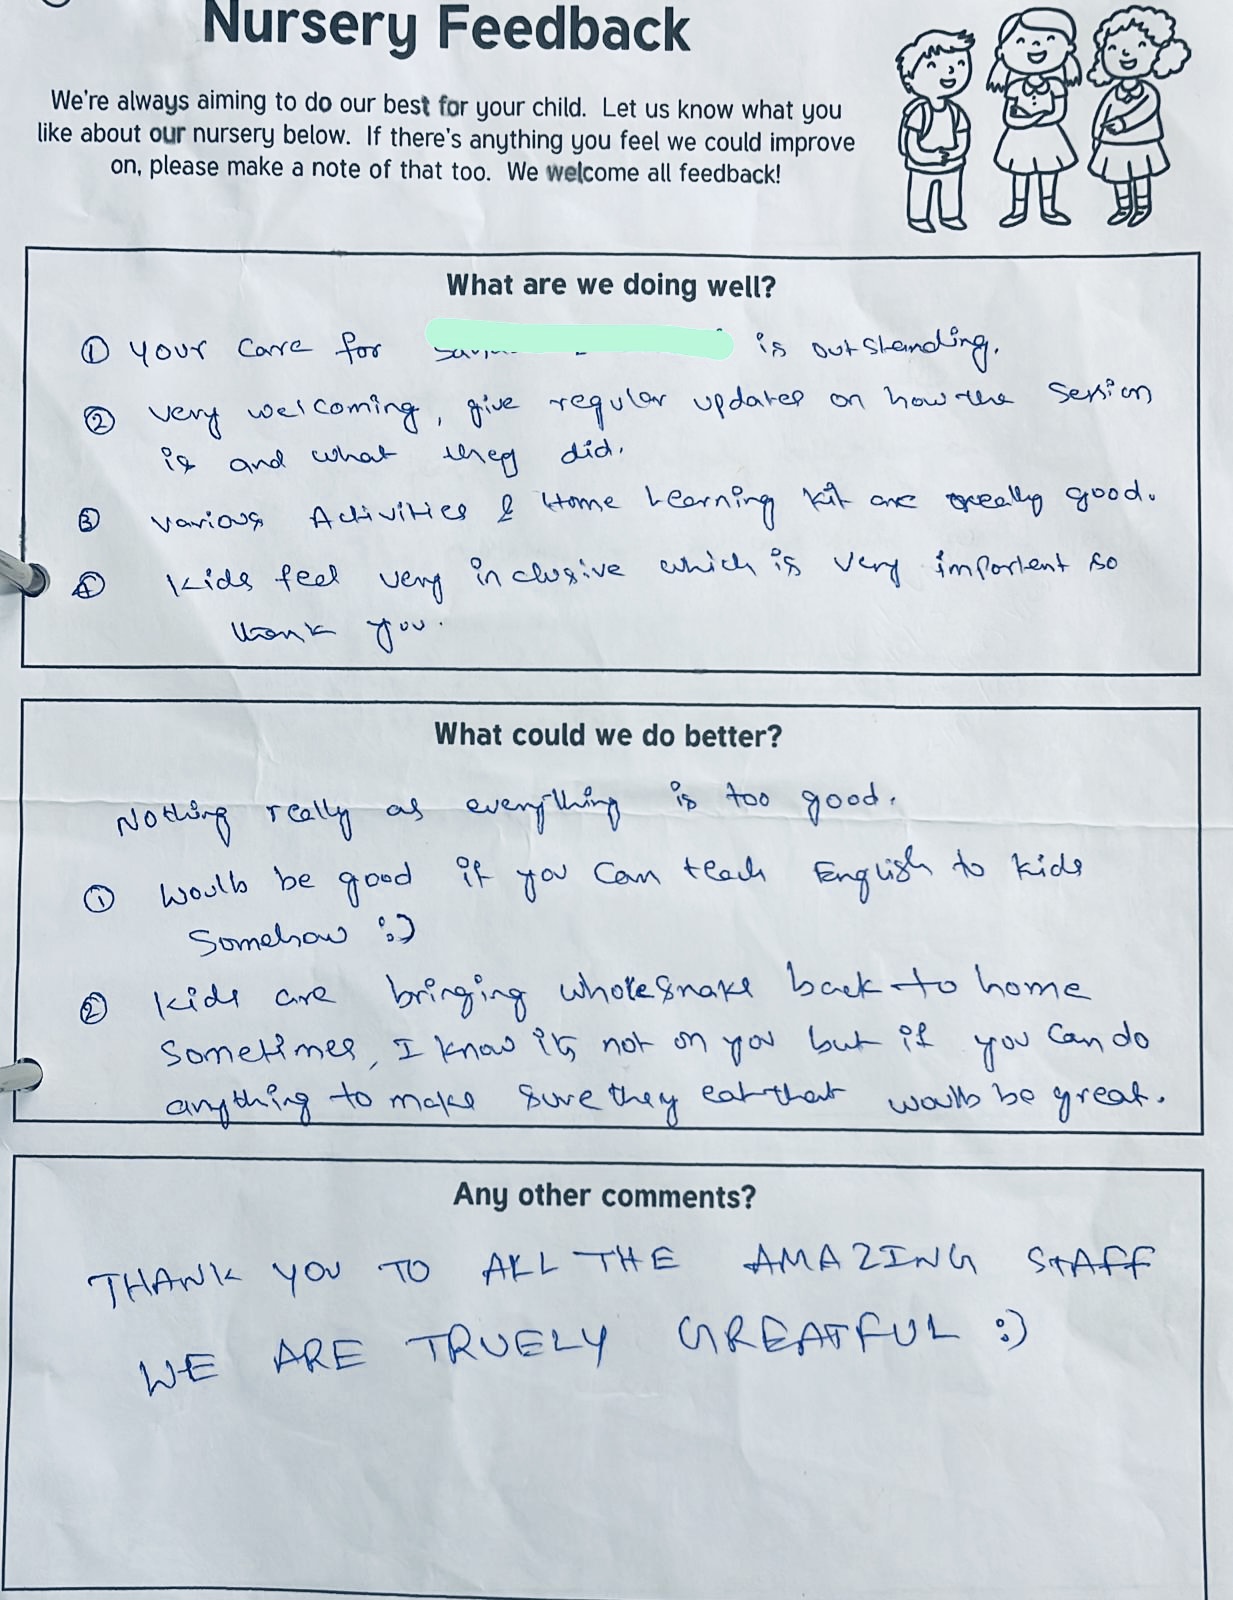 Nursery Feedback
We're always aiming to do our best for your child. Let us know what you
like about our nursery below. If there's anything you feel we could improve
on, please make a note of that too. We welcome all feedback!
What are we doing well?
① Your Care for is outstanding.
② Very welcoming, give regular updates on how the session
is and what they did.
③ Various Activities & Home Learning kit are really good.
④ Kids feel very inclusive which is very important so
thank you.
What could we do better?
Nothing really as everything is too good.
① Would be good if you can teach English to kids
Somehow :)
② Kids are bringing whole snake back to home
Sometimes, I know its not on you but if you can do
anything to make sure they eat that would be great.
Any other comments?
THANK YOU TO ALL THE AMAZING STAFF
WE ARE TRUELY GREATFUL :)